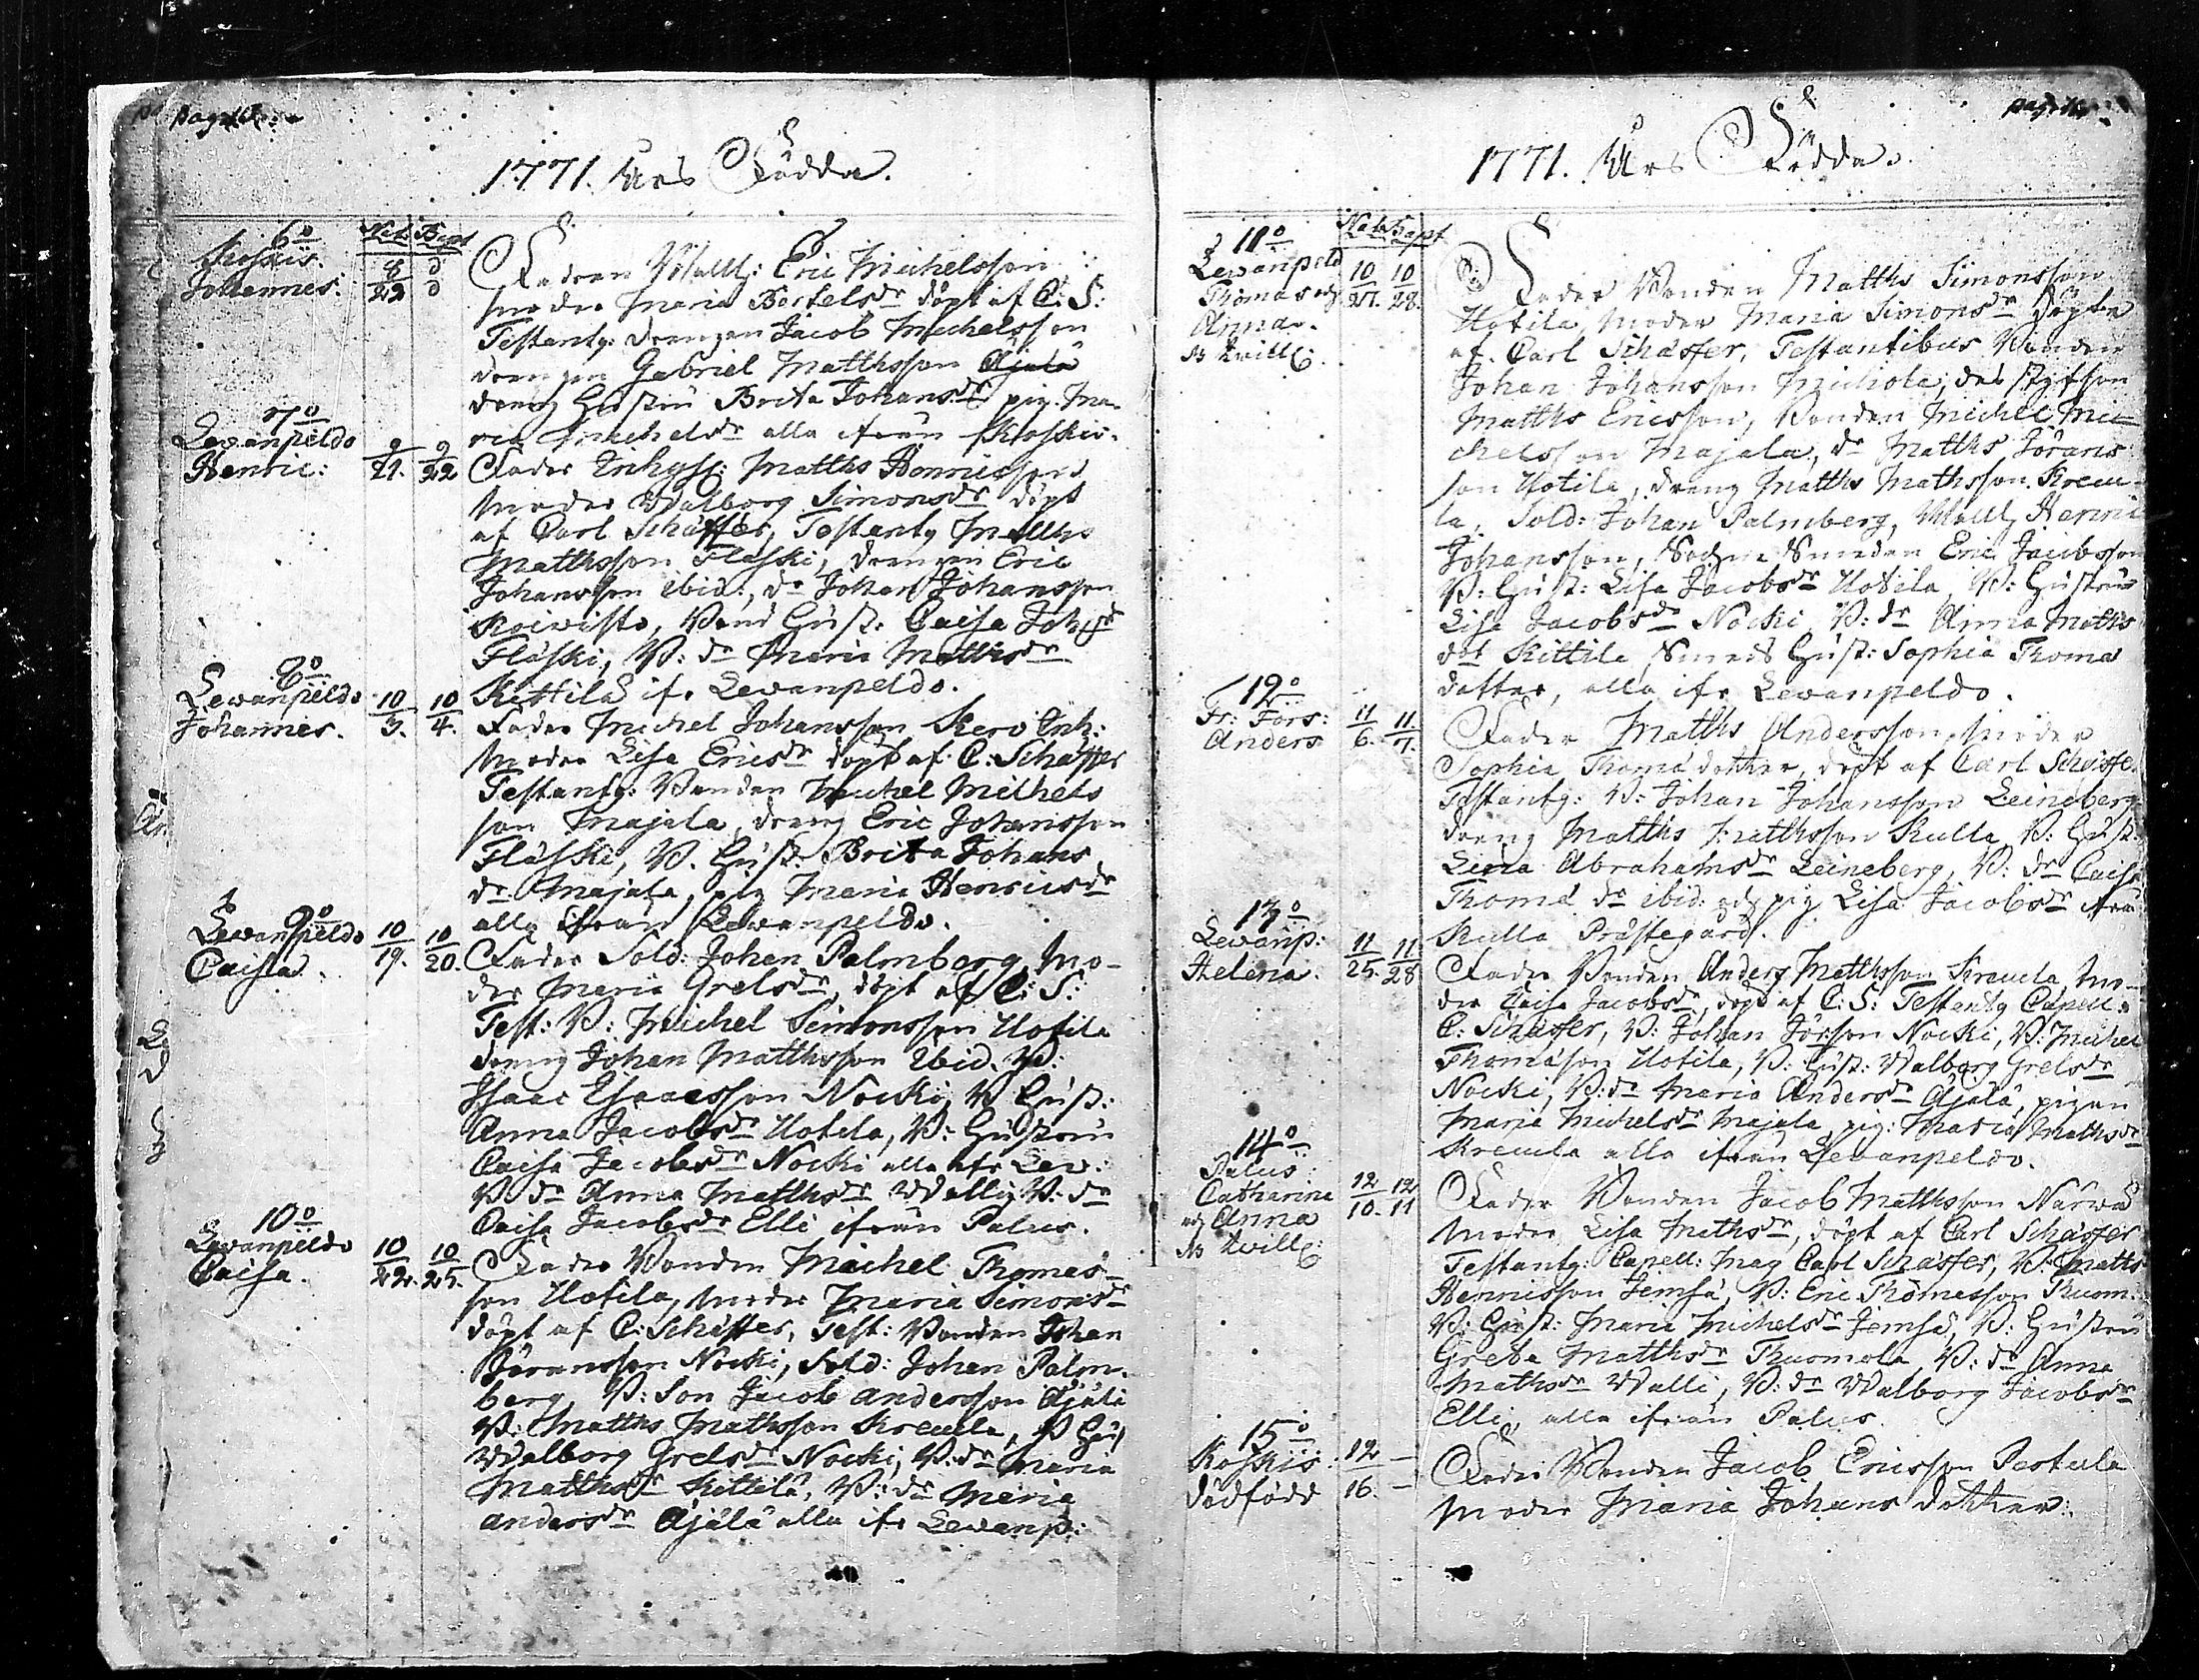 1771. Års Födda.
6o
Koskis.
Johannes.
Nat. Bapt
8 d
22 d
Fadren Mallt: Eric Michelsson
moder Maria Bertelsdr döpt af C: S:
Testantg: drengen Jacob Michelsson
drengen Gabriel Matthsson Äjälä
dreng hustru Brita Johansdr pig. Ma-
ria Michelsdr alla ifrån Koskis.
7o
Lewanpeldo
Henric:
9 9
21. 22
Fader Inhys: Matths Henricsson
moder Walborg Simonsdr döpt
af Carl Schäffer, Testantg Matths
Matthsson Fläski, drengen Eric
Johansson ibid:, do Johan Johansson
Koivisto, Bond Hust: Caisa Johsdr
Fläski, B: do Maria Matthsdr
Kittilä ifr Lewanpeldo.
8o
Lewanpeldo
Johannes.
10 10
3. 4.
Fader Michel Johansson Kero Inh:
moder Lisa Ericsdr döpt af C: Schäffer
Testantg: Bonden Michel Michels
son Majala, dreng Eric Johansson
Fläski, B. Hust. Brita Johans
dr Majala, pig Maria Henricsdr
alla ifrån Lewanpeldo.
9o
Lewanpeldo
Caisa.
10 10
19. 20.
Fader Sold: Johan Palmberg, mo-
der Maria Grelsdr, döpt af C: S:
Test: B: Michel Simonsson Uotila
dreng Johan Matthsson Ibid. B:
Isaac Isaacsson Nocki, B Hust:
Anna Jacobsdr Uotila, B: Hustru
Caisa Jacobsdr Nocki alla ifr Lew:
B do Anna Matthsdr Walli, B: do
Caisa Jacobsdr Elli ifrån Palus.
10o
Lewanpeldo
Caisa.
10 10
22. 25.
Fader Bonden Michel Thomas-
son Uotila, moder Maria Simonsdr
döpt af C: Schäffer, Test: Bonden Johan
Jöransson Nocki, Sold: Johan Palm-
berg B: Son Jacob Andersson Äjälä
B: Matths Mathsson Kreula, B Hus
Walborg Grelsdr Nocki, B: do Maria
Matthsdr Kittilä, B: do Maria
Andersdr Äjälä alla ifr Lewanp:
1771. Års Födda.
11o
Lewanpeld
Thomas och
Anna.
Nb Twill:
Nat. Bapt
10 10
27. 28.
Fader Bonden Matths Simonsson
Uotila, moder Maria Simonsdr Döpte
af Carl Schäffer, Testantibus Bonden
Johan Johansson, des styfson
Matths Ericsson, Bonden Michel Mi-
chelsson Majala, do Matths Jörans
son Uotila, dreng Matths Mathsson Kreu-
la, Sold: Johan Palmberg, Mallt, Henric
Johansson, Sockne Smeden Eric Jacobsson
B: Hust: Lisa Jacobsdr Uotila, B: Hustru
Lisa Jacobsdr Nocki, B: do Anna Maths
dotr Kittila, Smeds Hust: Sophia Thomæ
dotter, alla ifr Lewanpeldo.
12o
Fr: Fors:
Anders
11 11.
6. 7.
Fader Matths Andersson, moder
Sophia Thomæ dotter, döpt af Carl Schäffe.
Testantg: B: Johan Johansson Leineberg
dreng Matths Matthsson Kulla, B: Hust:
Lena Abrahamsdr Leineberg, B: do Caisa
Thomæ dr ibid: och pig Lisa Jacobsdr ifrån
Kulla Prästegård.
13o
Lewanp:
Helena.
11 11
25. 28
Fader Bonden Anders Matthsson Kreula, mo-
der Caisa Jacobsdr, döpt af C: S: Testantg Capell:
C: Schäffer, B: Johan Jörsson Nocki, B: Michel
Thomasson Uotila, B: Hust: Walborg Grelsdr
Nocki, B: do Maria Andersdr Äjälä, pigan
Maria Michelsdr Majala, pig: Maria Mathsdr
Kreula alla ifrån Lewanpeldo.
14o
Palus
Catharina
och Anna
Nb Twill:
12 12
10. 11
Fader Bonden Jacob Matthsson Närwä
moder Lisa Mathsdr, döpt af Carl Schäffer
Testantg: Capell: Mag Carl Schäffer, B: Matths
Henricsson Jemsä, B: Eric Thomasson Thuom:
B: Hust: Maria Michelsdr Jemsä, B: Hustru
Greta Matthsdr Thuomola, B: do Anna
Mathsdr Walli, B: do Walborg Jacobsdr
Elli, alla ifrån Palus.
15o
Koskis:
dödfödd
12 –
16. –
Fader Bonden Jacob Ericsson Pertula
moder Maria Johans dotter.